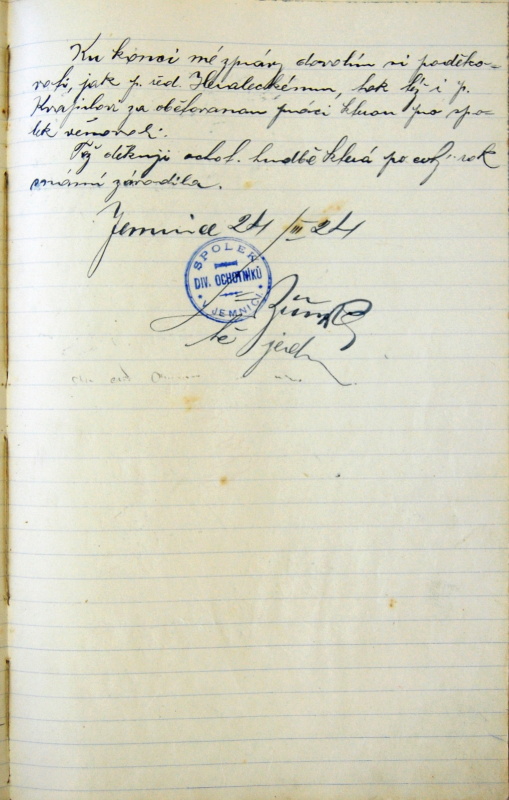 Ku konci mé zprávy dovolím si poděko-
vati, jak p. řed. Heraleckému, tak též i p.
za obětovanou práci kterou pro spo-
lek věnovali.
Též děkuji ochot. hudbě která po celý rok
s námi závodila.
Jemnice 24/III 24
SPOLEK
DIV. OCHOTNÍKŮ
V JEMNICI